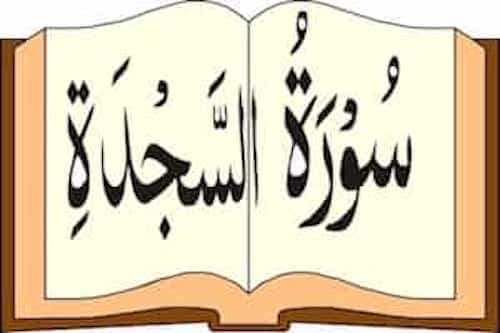 سُوْرَةُ السَّجُدَةِ